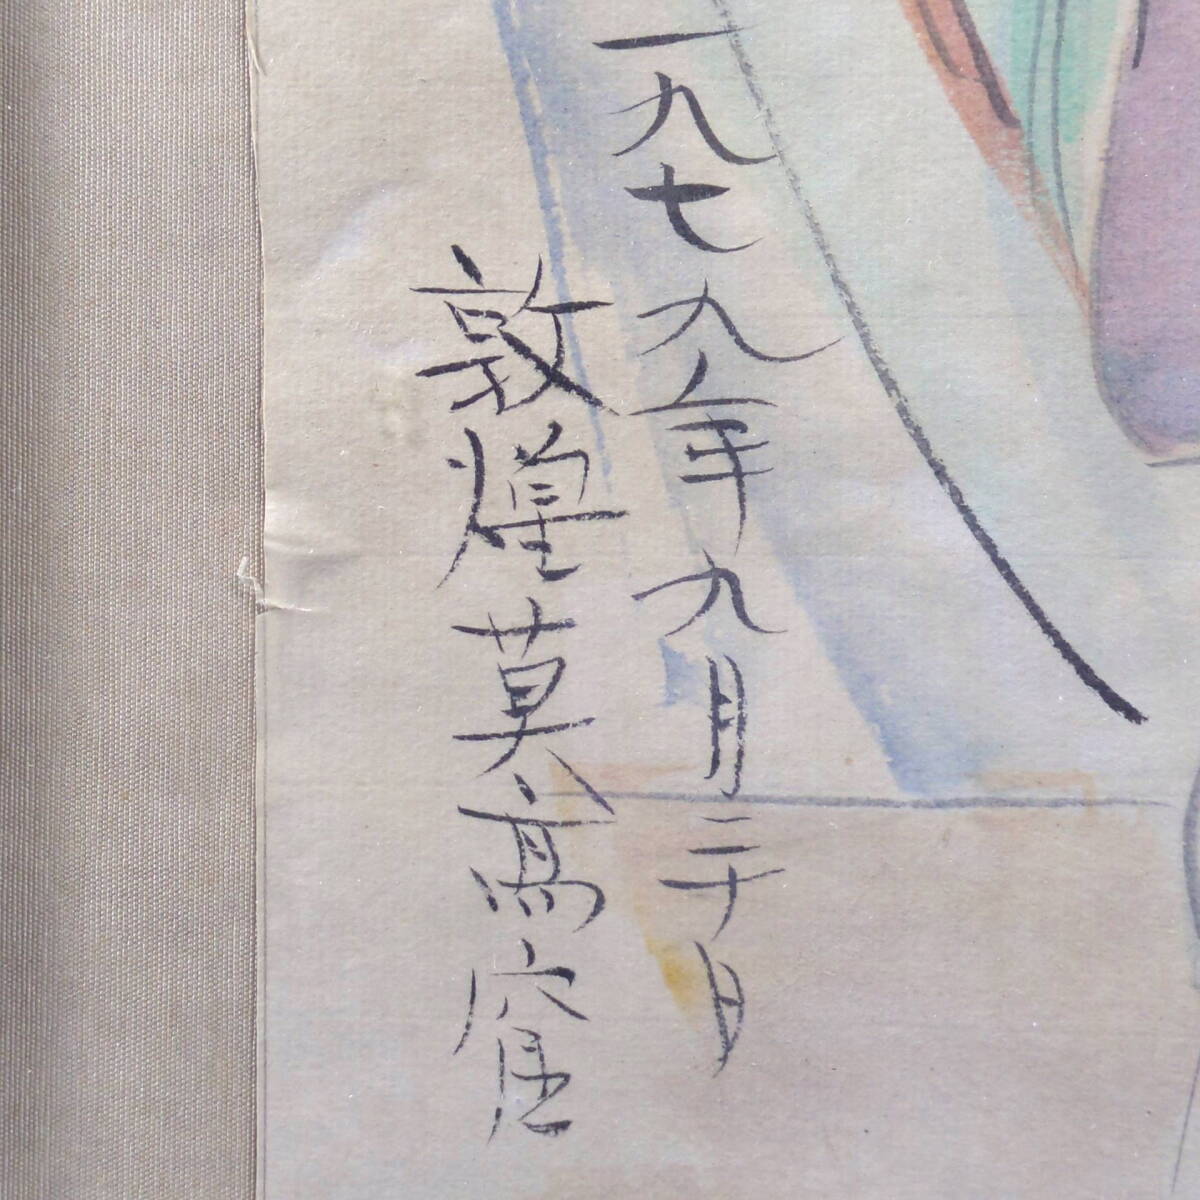 一九七九年九月二十日
敦煌莫高窟